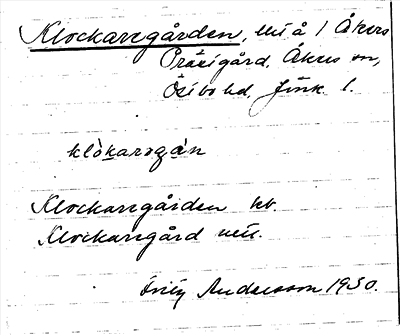 Klockaregården, litt å 1 Åkers
Prästgård, Åkers sn,
Östbo hd, Jönk. l.
klòkaragàn
Klockaregården kb.
Klockaregård
Andersson 1930.